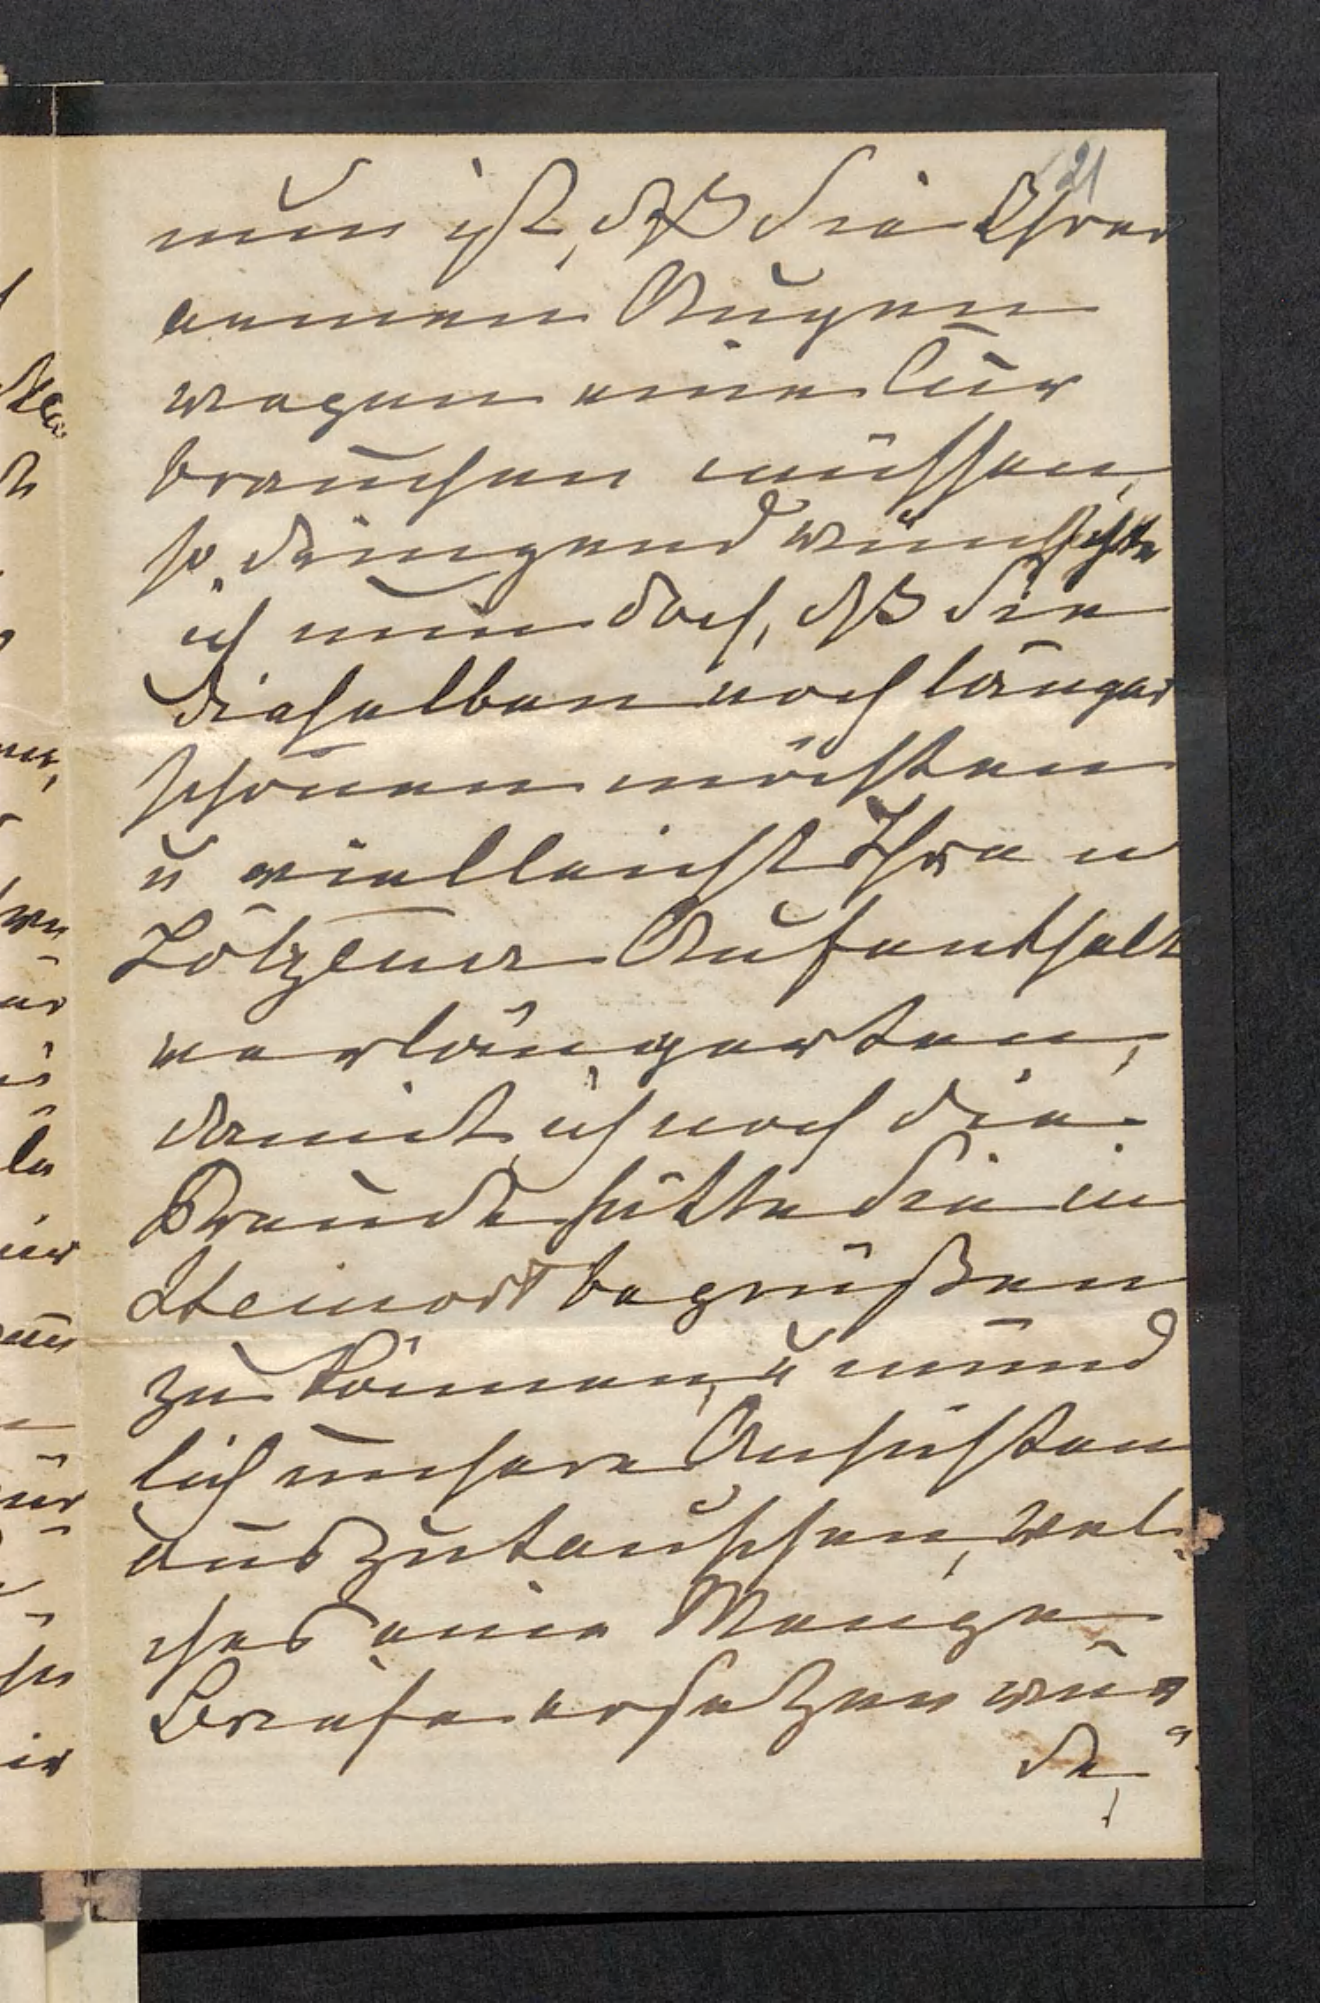 21
nun ist, dß Sie Ihrer
armen Augen
wegen eine Cur
brauchen müssen,
so dringend wünschte
ich nun doch, dß Sie
dieselben noch länger
schonen möchten
u vielleicht Ihren
Lötzener Aufenthalt
verlängerten,
damit ich noch die
Freude hätte Sie in
Steinort begrüßen
zu können, u münd
lich unsere Ansichten
auszutauschen, wel-
ches eine Menge
Briefe ersetzen wür
de,